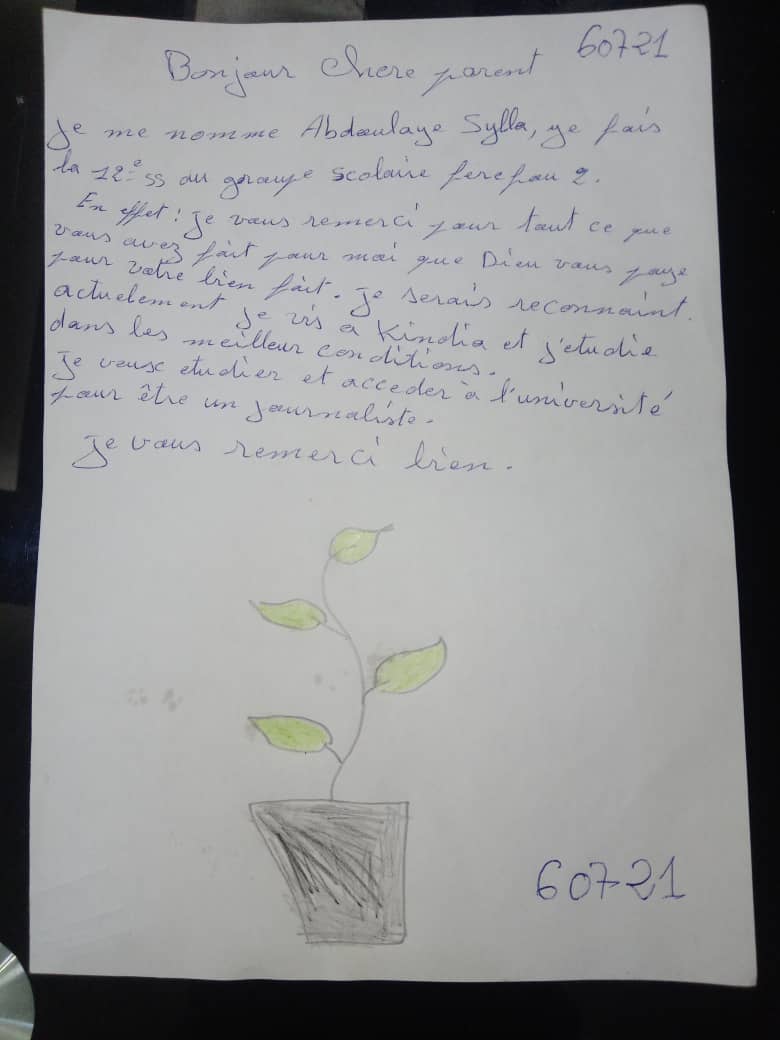 60721
Bonjour Chere parent
Je me nomme Abdoulaye Sylla, ye fais
la 12e ss du groupe scolaire ferefou 2.
En effet: Je vous remerci pour tout ce que
vous avez fait pour moi que Dieu vous paye
pour votre bien fait. Je serais reconnaint.
actuelement je vis a Kindia et j'etudie
dans les meilleur conditions.
Je veux etudier et acceder à l'université
pour être un journaliste.
Je vous remerci bien.
60721